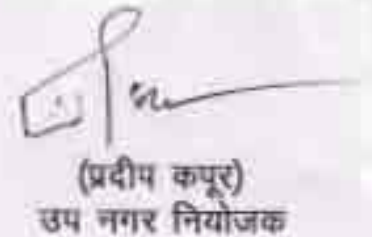 (प्रदीप कपूर)
उप नगर नियोजक